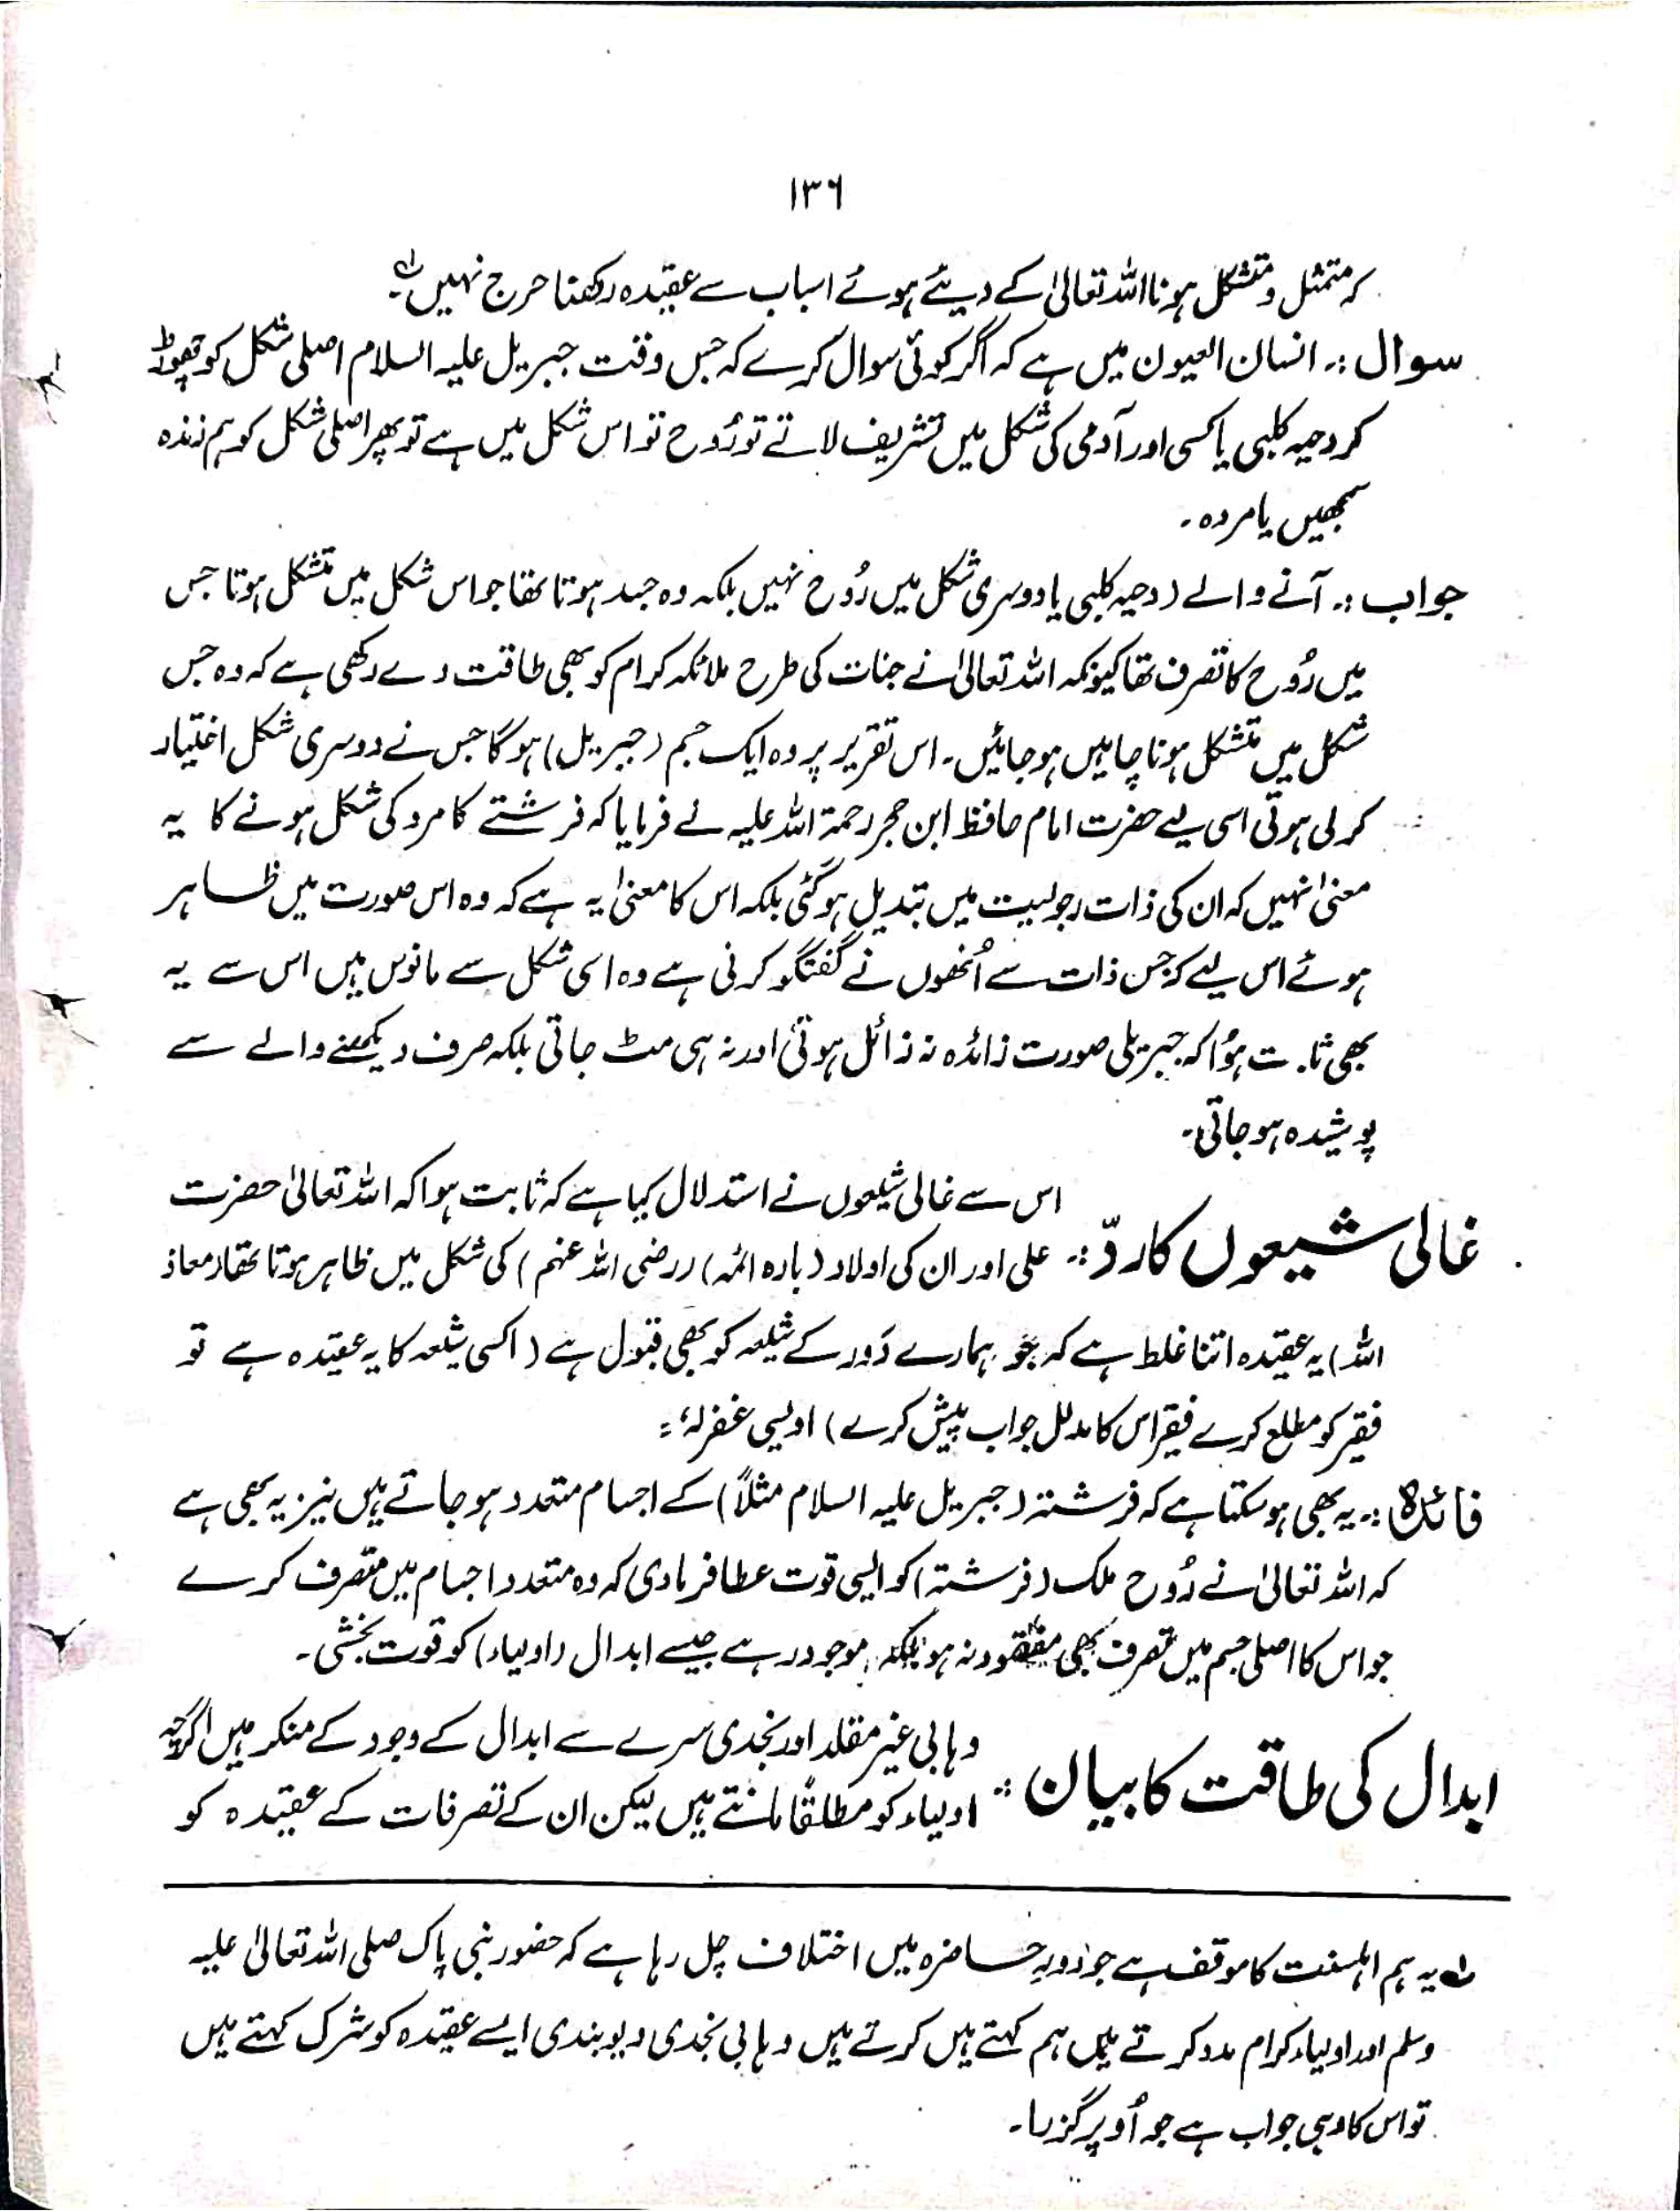 ۱۳۶
کر متمثل و متشکل ہونا اللہ تعالیٰ کے دیئے ہوئے اسباب سے عقیدہ رکھنا حرج نہیں لہ۔
سوال :۔ انسان العیون میں ہے کہ اگر کوئی سوال کرے کہ جس وقت جبریل علیہ السلام اصلی شکل کو چھوڑ
کر دحیہ کلبی یا کسی اور آدمی کی شکل میں تشریف لاتے تو رُوح تو اس شکل میں ہے تو پھر اصلی شکل کو ہم زندہ
سمجھیں یا مردہ ۔
جواب :۔ آنے والے ( دحیہ کلبی یا دوسری شکل میں رُوح نہیں بلکہ وہ جسد ہوتا تھا جو اس شکل میں متشکل ہوتا جس
میں رُوح کا تصرف تھا کیونکہ اللہ تعالیٰ نے جنات کی طرح ملائکہ کرام کو بھی طاقت دے رکھی ہے کہ وہ جس
شکل میں متشکل ہونا چاہیں ہو جائیں ۔ اس تقریر پر وہ ایک جسم (جبریل) ہوگا جس نے دوسری شکل اختیار
کر لی ہوتی اسی لیے حضرت امام حافظ ابن حجر رحمۃ اللہ علیہ نے فرمایا کہ فرشتے کا مرد کی شکل ہونے کا یہ
معنیٰ نہیں کہ ان کی ذات رجولیت میں تبدیل ہو گئی بلکہ اس کا معنیٰ یہ ہے کہ وہ اس صورت میں ظاہر
ہوئے اس لیے کہ جس ذات سے اُنھوں نے گفتگو کرنی ہے وہ اسی شکل سے مانوس ہیں اس سے یہ
بھی ثابت ہُوا کہ جبریلی صورت زائدہ نہ زائل ہوتی اور نہ ہی مٹ جاتی بلکہ صرف دیکھنے والے سے
پوشیدہ ہو جاتی ۔
غالی شیعوں کا ردّ :۔ اس سے غالی شیعوں نے استدلال کیا ہے کہ ثابت ہوا کہ اللہ تعالیٰ حضرت
علی اور ان کی اولاد (بارہ ائمہ) (رضی اللہ عنہم) کی شکل میں ظاہر ہوتا تھا (معاذ
اللہ) یہ عقیدہ اتنا غلط ہے کہ جو ہمارے دَور کے شیعہ کو بھی قبول ہے ( اکسی شیعہ کا یہ عقیدہ ہے تو
فقیر کو مطلع کرے فقیر اس کا مدلل جواب پیش کرے ) اویسی غفرلہٗ :
فائدہ :۔ یہ بھی ہو سکتا ہے کہ فرشتہ (جبریل علیہ السلام مثلاً) کے اجسام متعدد ہو جاتے ہیں نیز یہ بھی ہے
کہ اللہ تعالیٰ نے رُوح ملک (فرشتہ) کو ایسی قوت عطا فرمادی کہ وہ متعدد اجسام میں متصرف کرے
جو اس کا اصلی جسم میں تصرف بھی مفقود نہ ہو بلکہ موجود رہے جیسے ابدال (اولیاء) کو قوت بخشی ۔
ابدال کی طاقت کا بیان :۔ وہابی غیر مقلد اور نجدی سرے سے ابدال کے وجود کے منکر ہیں اگرچہ
اولیاء کو مطلقًا مانتے ہیں لیکن ان کے تصرفات کے عقیدہ کو
لہ یہ ہم اہلسنت کا موقف ہے جو دورِ حاضرہ میں اختلاف چل رہا ہے کہ حضور نبی پاک صلی اللہ تعالیٰ علیہ
وسلم اور اولیاء کرام مدد کرتے ہیں ہم کہتے ہیں کرتے ہیں وہابی نجدی دیوبندی ایسے عقیدہ کو شرک کہتے ہیں
تو اس کا وہی جواب ہے جو اُوپر گزرا ۔